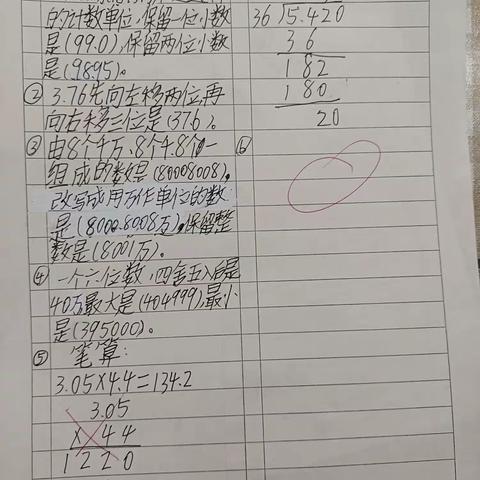 的计数单位,保留一位小数
是(99.0),保留两位小数
是(98.95)。
② 3.76先向左移两位,再
向右移三位是(37.6)。
③ 由8个千万、8个千、8个一
组成的数是(80008008),
改写成用万作单位的数
是(8000.8008万),保留整
数是(8001万)。
④ 一个六位数,四舍五入后是
40万最大是(404999),最小
是(395000)。
⑤ 笔算:
3.05×4.4=134.2
3.05
× 44
1220
36 5.420
36
182
180
20
⑥